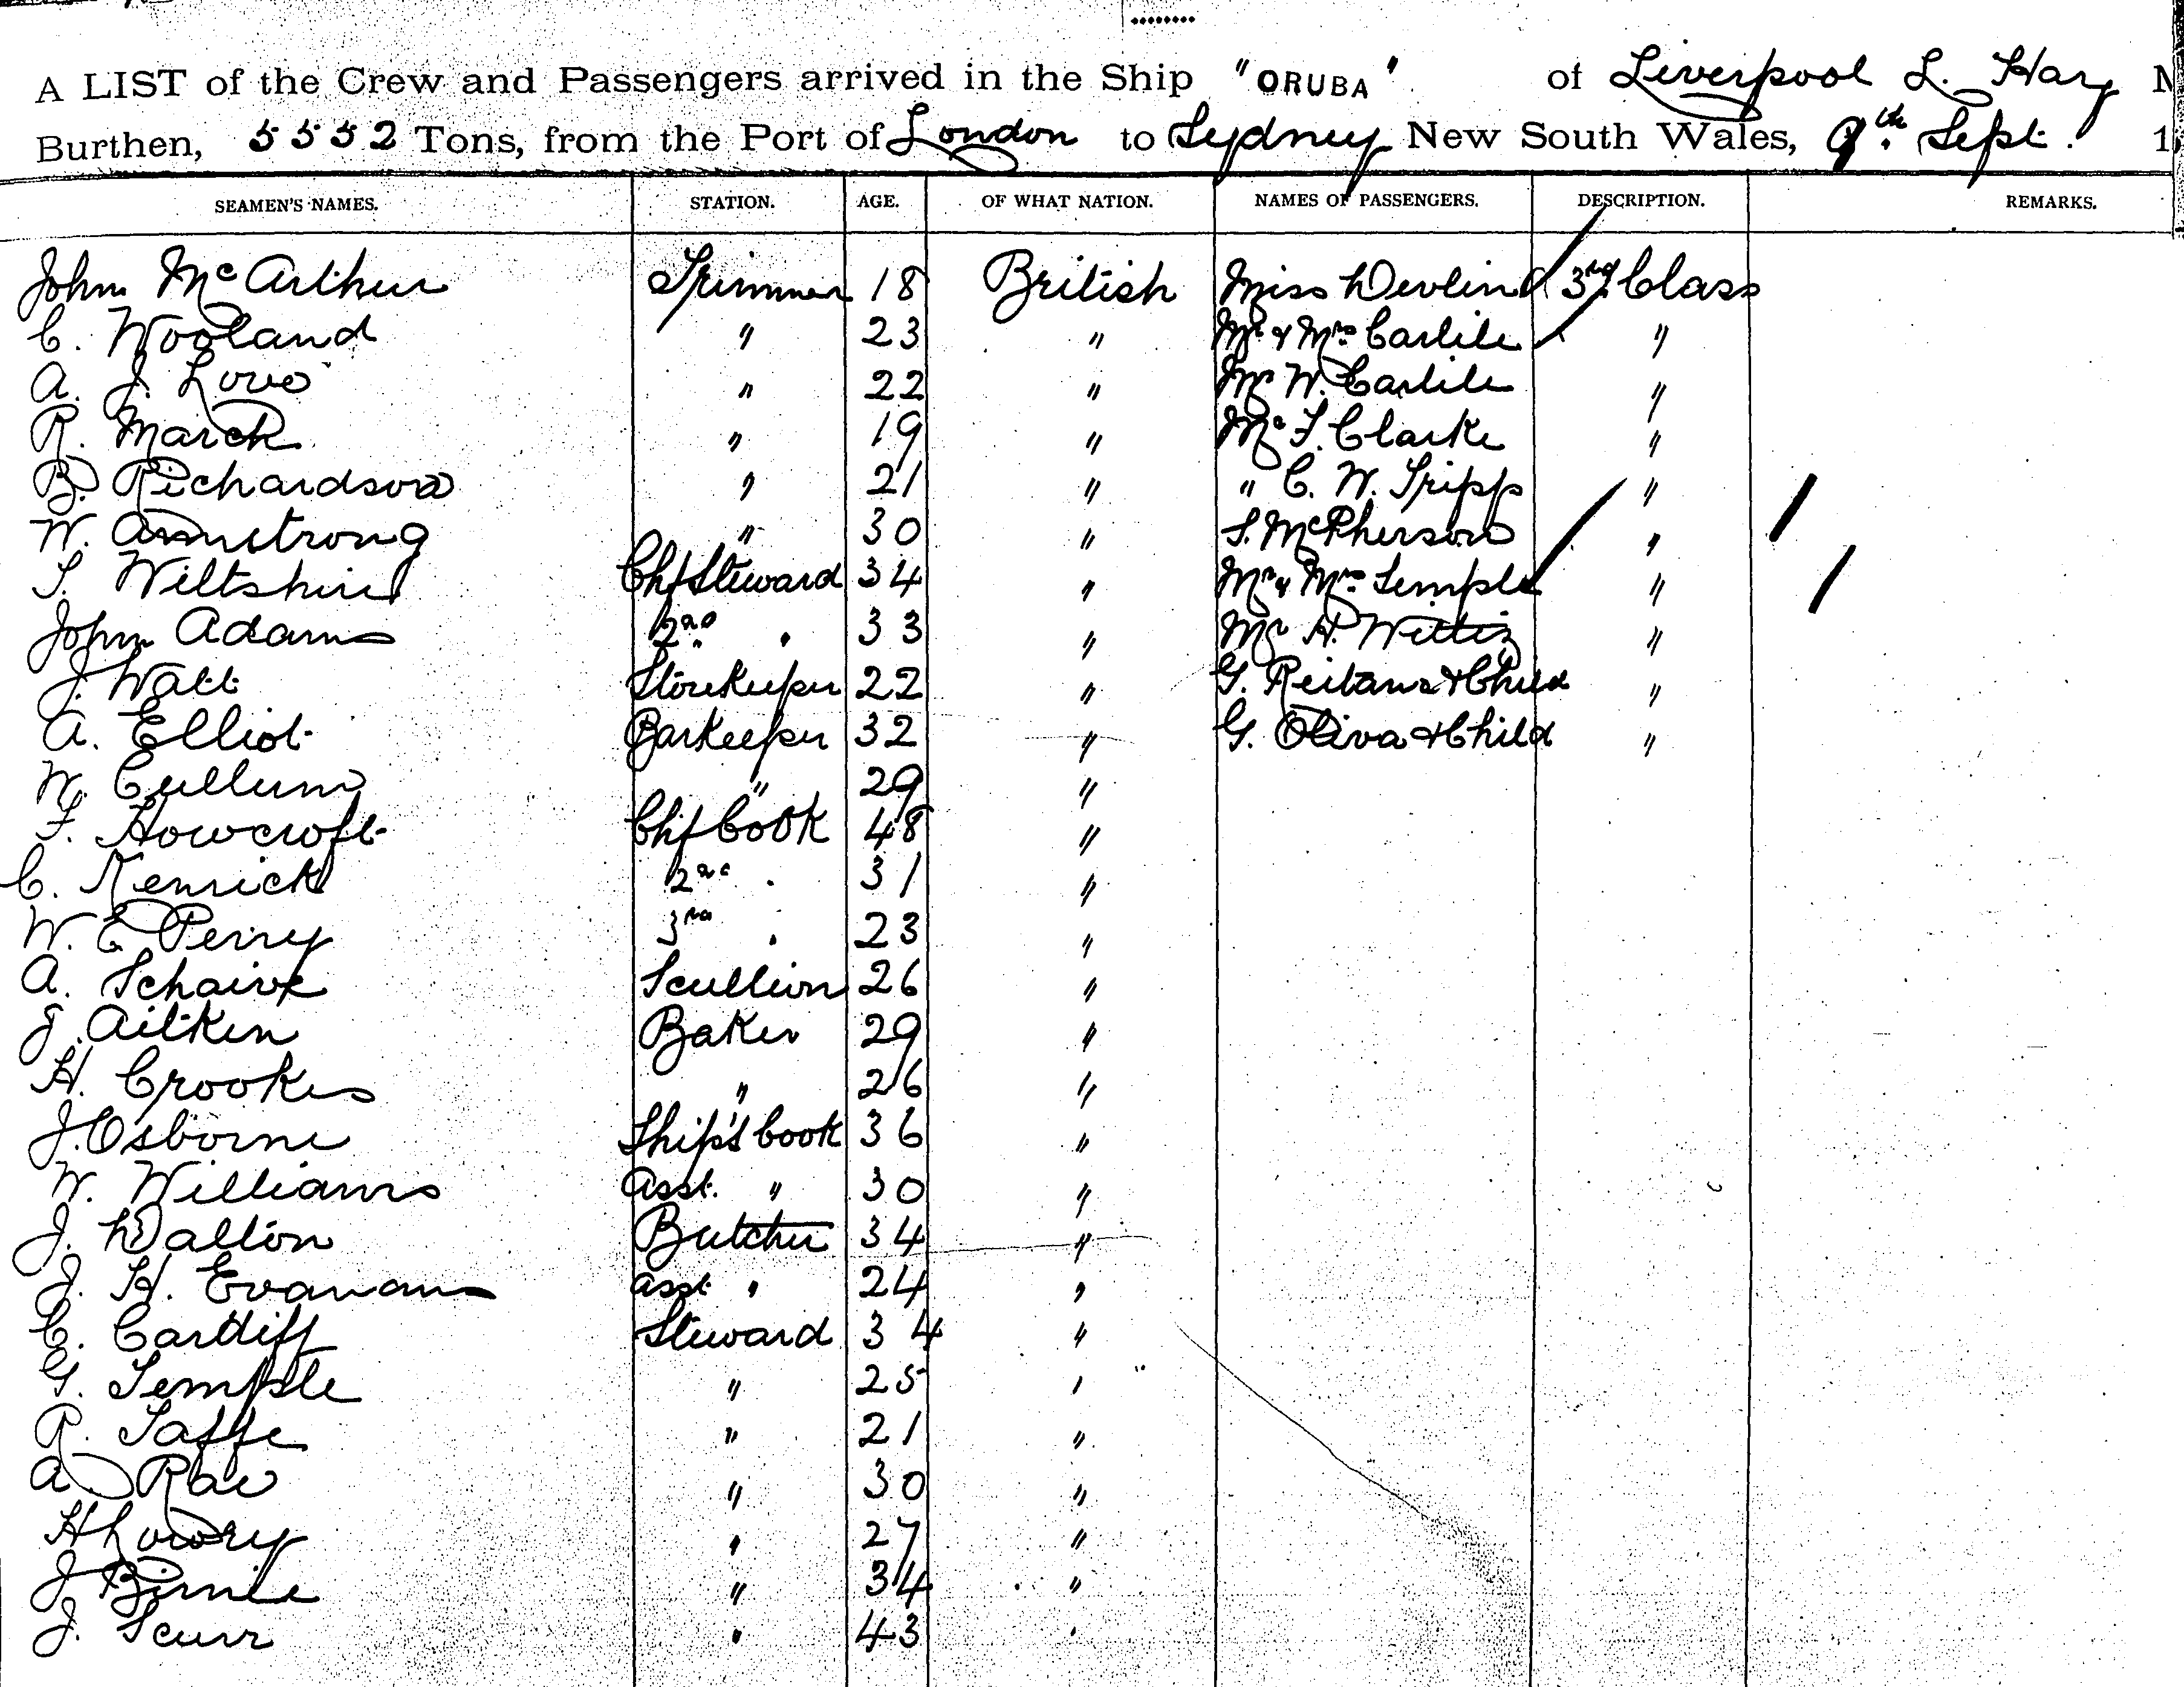 A LIST of the Crew and Passengers arrived in the Ship "ORUBA" of Liverpool L. Hay
Burthen, 5552 Tons, from the Port of London to Sydney New South Wales, 9th Sept.
SEAMEN'S NAMES. STATION. AGE. OF WHAT NATION. NAMES OF PASSENGERS. DESCRIPTION. REMARKS.
John McArthur Trimmer 18 British Miss Devlin 3rd Class
C. Wooland " 23 " Mr & Mrs Carlile "
A. J. Love " 22 " Mr W. Carlile "
R. March " 19 " Mr F. Clarke "
B. Richardson " 21 " " C. W. Tripp "
W. Armstrong " 30 " S. McPherson "
S. Wiltshire Chf Steward 34 " Mr & Mrs Semple "
John Adams 2nd " 33 " Mr H. Wittig "
J. Watt Storekeeper 22 " G. Reitana & Child "
A. Elliot Barkeeper 32 " G. Oliva & Child "
W. Cullum " 29 "
F. Howcroft Chf Cook 48 "
C. Kenrick 2nd " 31 "
W. E Perry 3rd " 23 "
A. Scullion 26 "
J. Aitken Baker 29 "
H. Crookes " 26 "
J. Osborne Ship's Cook 36 "
W. Williams Asst. " 30 "
J. Dalton Butcher 34 "
J. H. Evanans Asst " 24 "
C. Cardiff Steward 34 "
G. Temple " 25 "
R. Taffe " 21 "
A Rae " 30 "
H Lowry " 27 "
J Birnie " 34 "
J. Scurr " 43 "